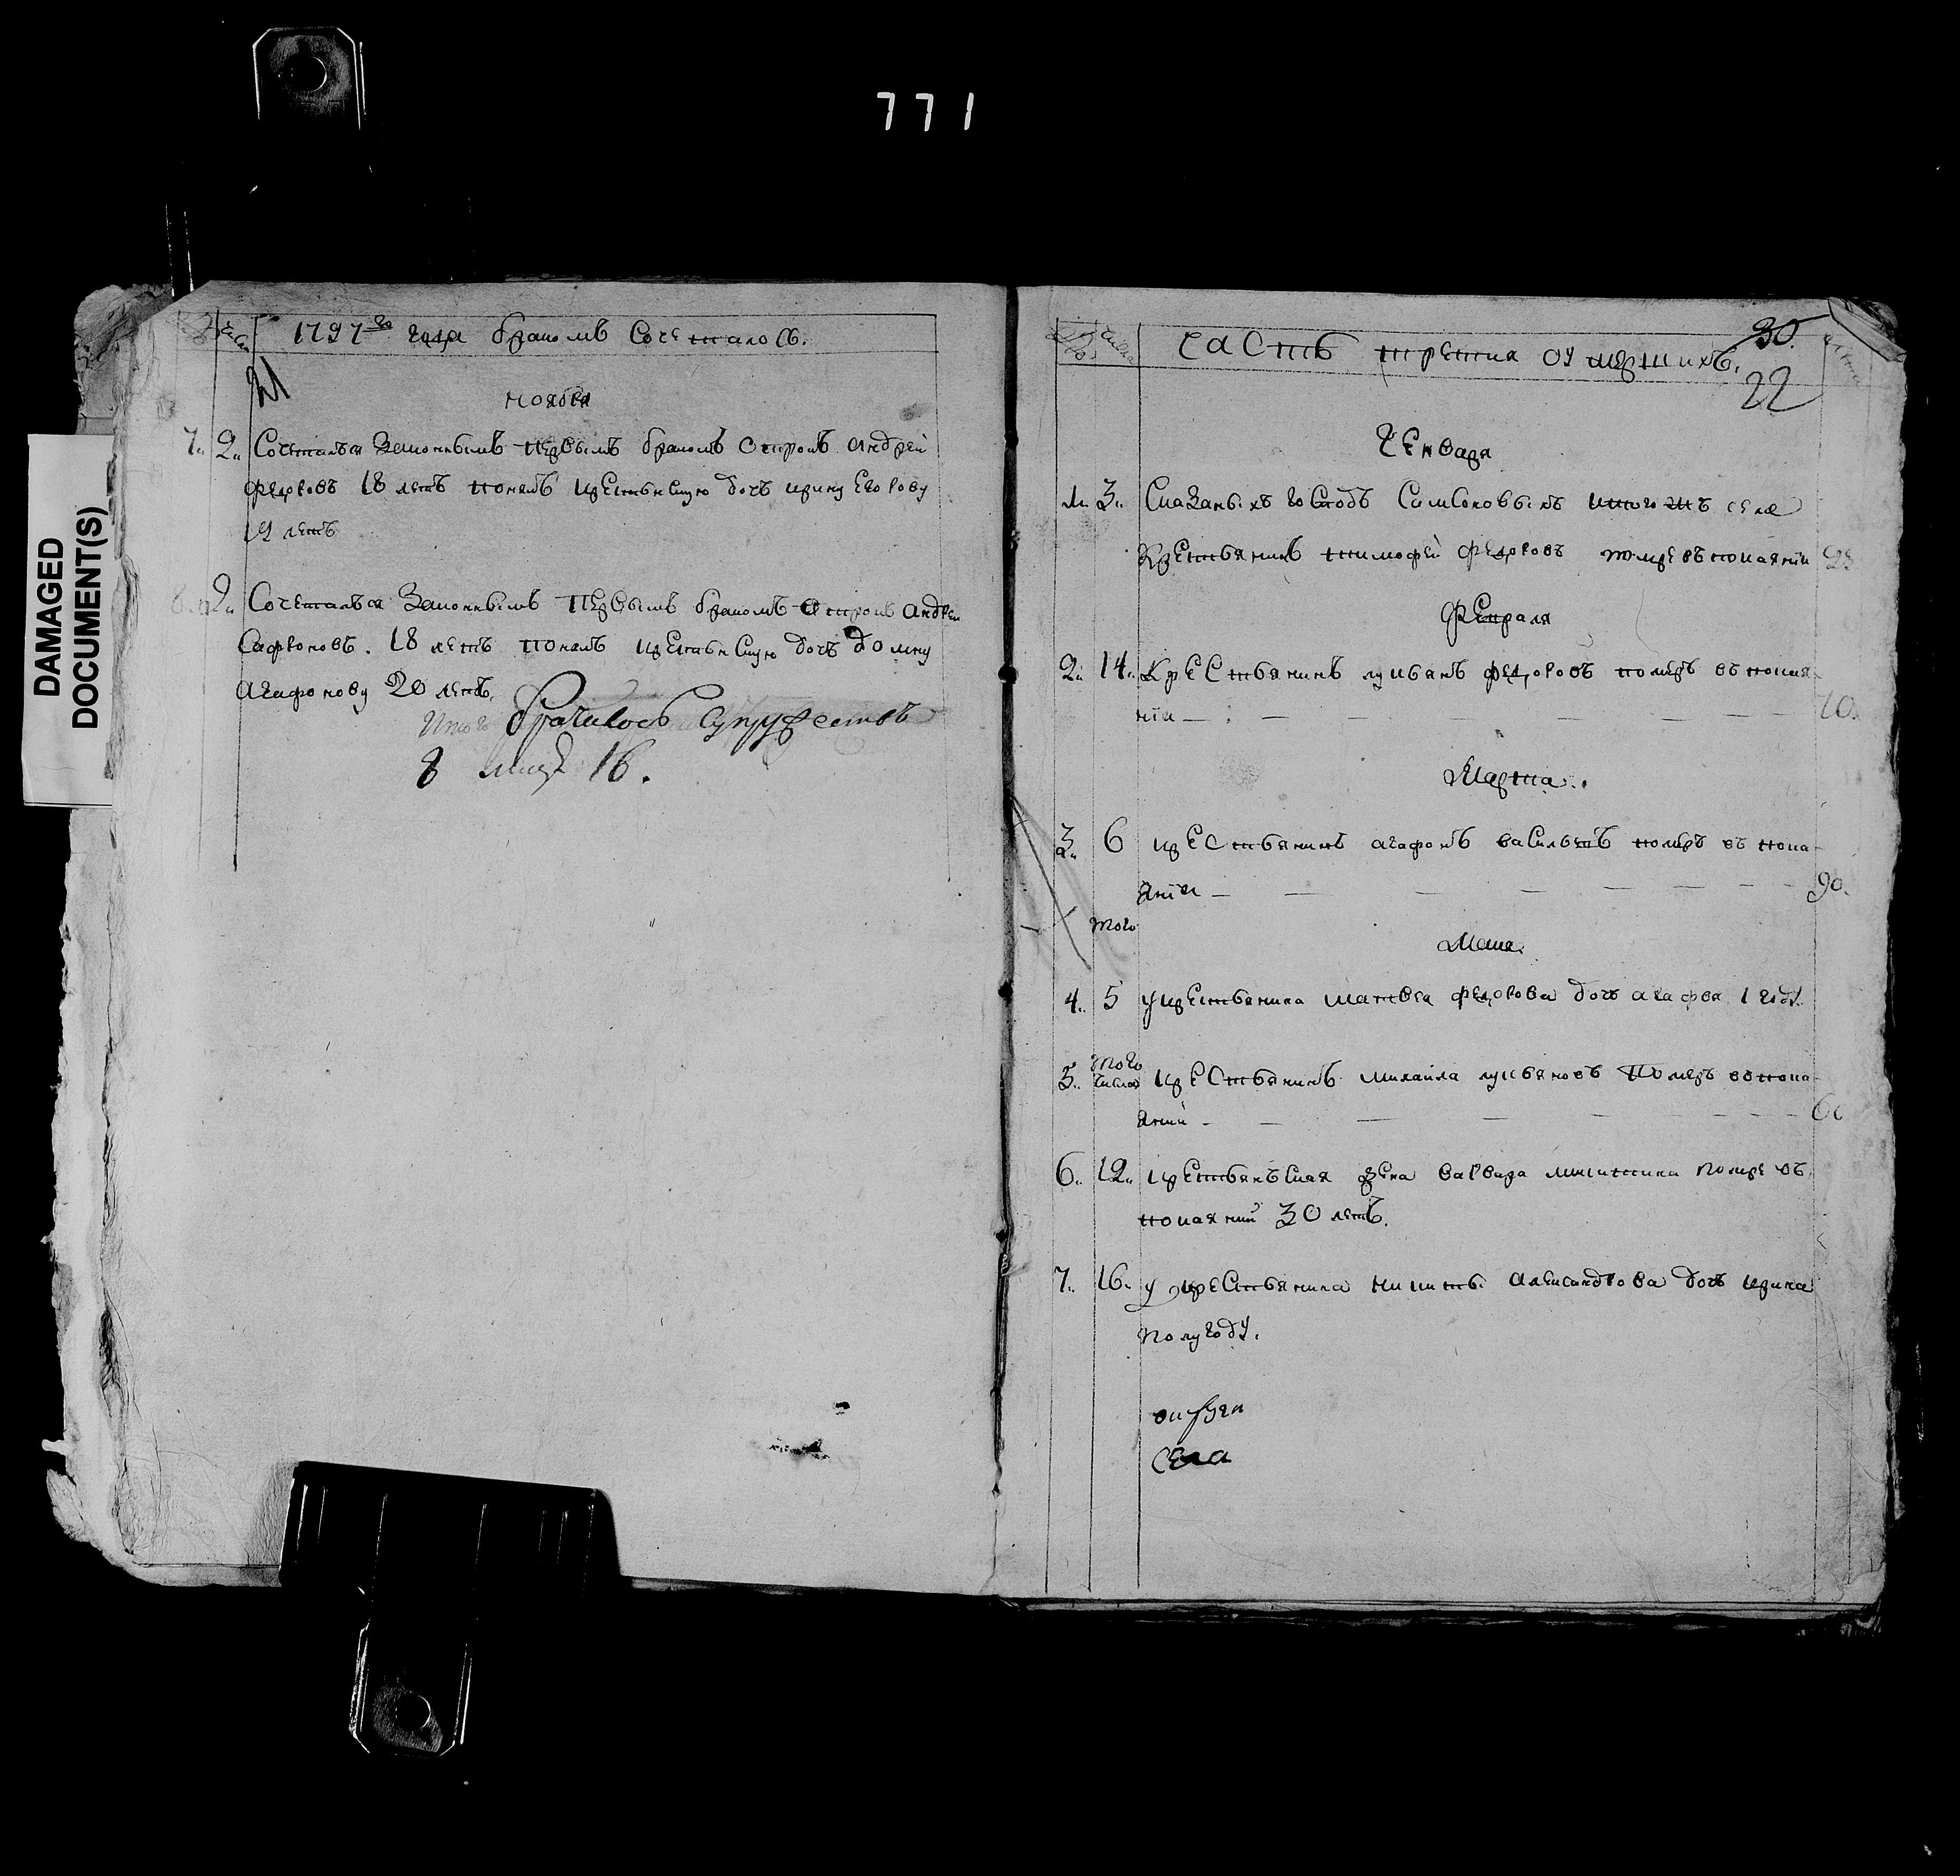 771
DAMAGED
DOCUMENT(S)
1797го года бракомъ Сочеталось.
21
ноября
7. 2. Сочетался Законнымъ первымъ бракомъ отрокъ андрей
федоровъ 18 летъ понялъ крестьянскую дочь ирину Егорову
19 летъ
8. 2. Сочетался Законнымъ первымъ бракомъ отрокъ андреи
Сафроновъ. 18 летъ понялъ крестьянскую дочь домну
агафонову 20 летъ.
Итого брачилось Супружествъ
8 лицъ 16.
часть третия оумершихъ.
30.
22
Генваря
1. 3. Сказаныхъ господъ Самсоновыхъ тогожъ села
Крестьянинъ тимофей федоровъ помре въ покаянїи
февраля
2. 14. Крестьянинъ лукьянъ федоровъ померъ въ покая
нїи 70.
Марта.
3. 6 крестьянинъ агафонъ васильевъ померъ въ пока
янїи 90.
того
Маия.
4. 5 у крестьянина матвея федорова дочь агафья 1 году.
5. того числа крестьянинъ михайла лукьяновъ померъ въ пока
янїи
6. 12. крестьянъская жена варвара никитина помре въ
покаянии 30 летъ.
7. 16. у крестьянина никиты александрова дочь ирина
полугоду.
села